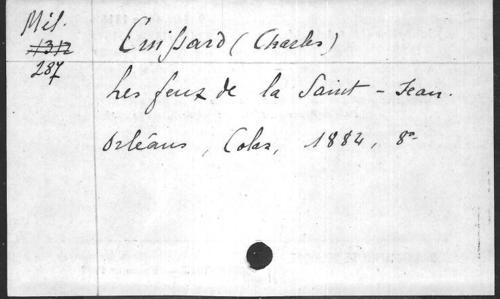 Mil.
1312
287
Cuissard (Charles)
Les feux de la Saint-Jean.
Orléans, Colas, 1884, 8°